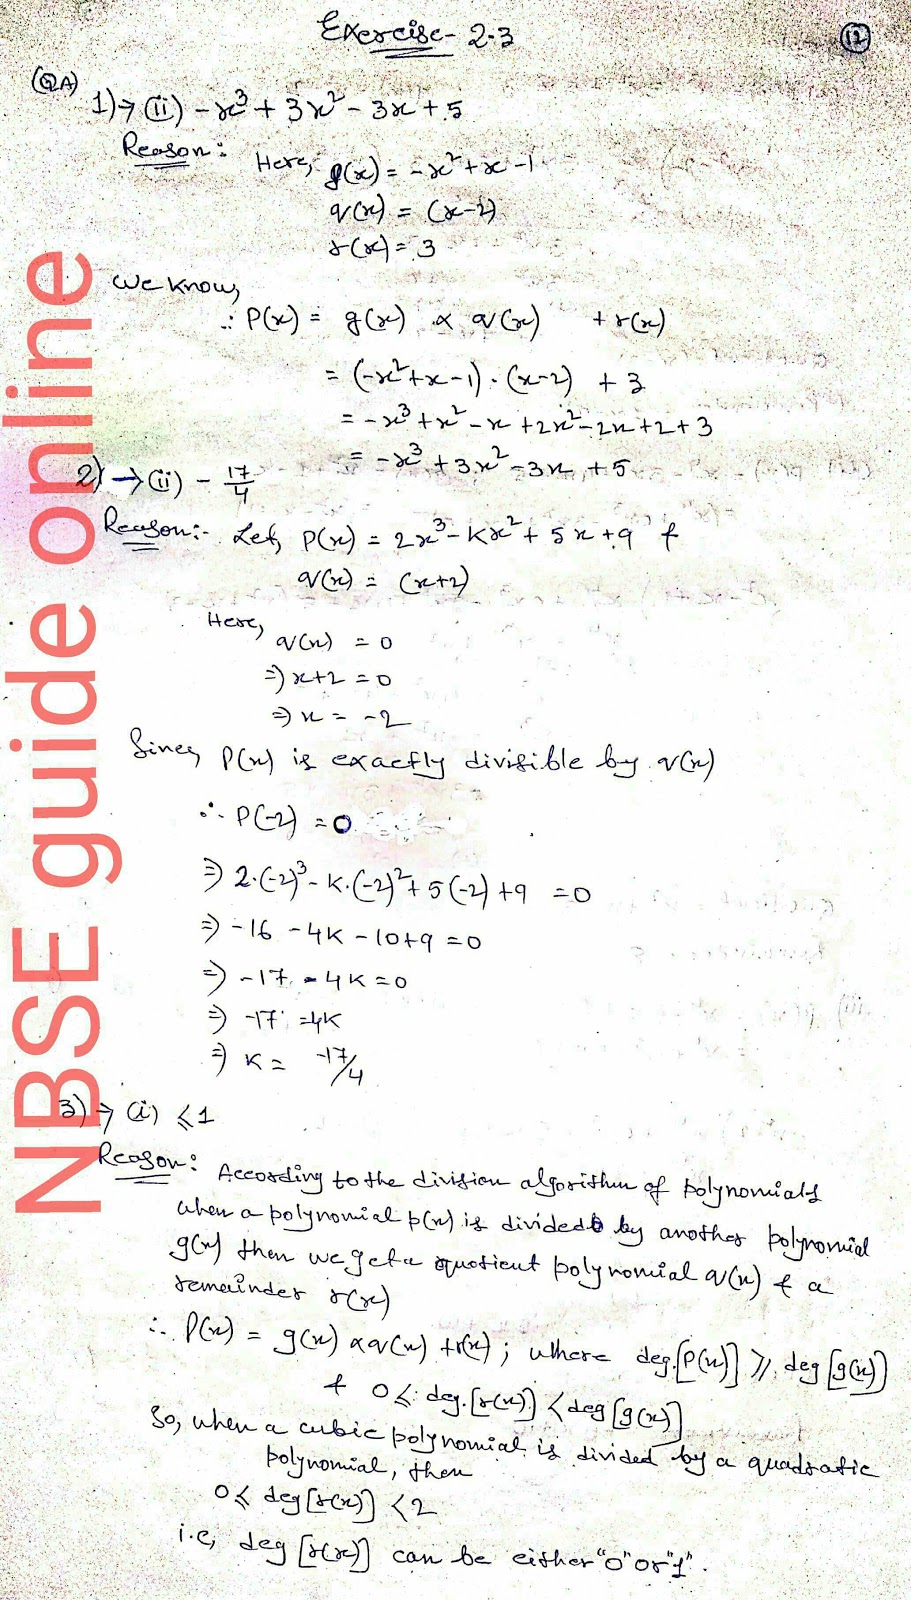 Exercise- 2.3
12
(QA)
1)→ (ii) -x³ + 3x² - 3x + 5
Reason: Here, g(x) = -x² + x - 1
q(x) = (x-2)
r(x) = 3
We know,
∴ P(x) = g(x) × q(x) + r(x)
= (-x²+x-1)·(x-2) + 3
= -x³+x²-x+2x²-2x+2+3
= -x³+3x²-3x+5
2)→(ii) -17/4
Reason:- Let, P(x) = 2x³-Kx²+5x+9 &
q(x) = (x+2)
Here,
q(x) = 0
⇒ x+2 = 0
⇒ x = -2
Since, P(x) is exactly divisible by q(x)
∴ P(-2) = 0
⇒ 2·(-2)³-K·(-2)²+5(-2)+9 = 0
⇒ -16 -4K -10+9 = 0
⇒ -17 -4K = 0
⇒ -17 = 4K
⇒ K = -17/4
3)→ (i) ⩽1
Reason: According to the division algorithm of polynomials
when a polynomial p(x) is divided by another polynomial
g(x) then we get a quotient polynomial q(x) & a
remainder r(x)
∴ P(x) = g(x)×q(x)+r(x); where deg.[P(x)] ⩾ deg[g(x)]
& 0⩽ deg.[r(x)] < deg[g(x)]
So, when a cubic polynomial is divided by a quadratic
polynomial, then
0⩽ deg[r(x)] <2
i.e, deg[r(x)] can be either "0" or "1".
NBSE guide online